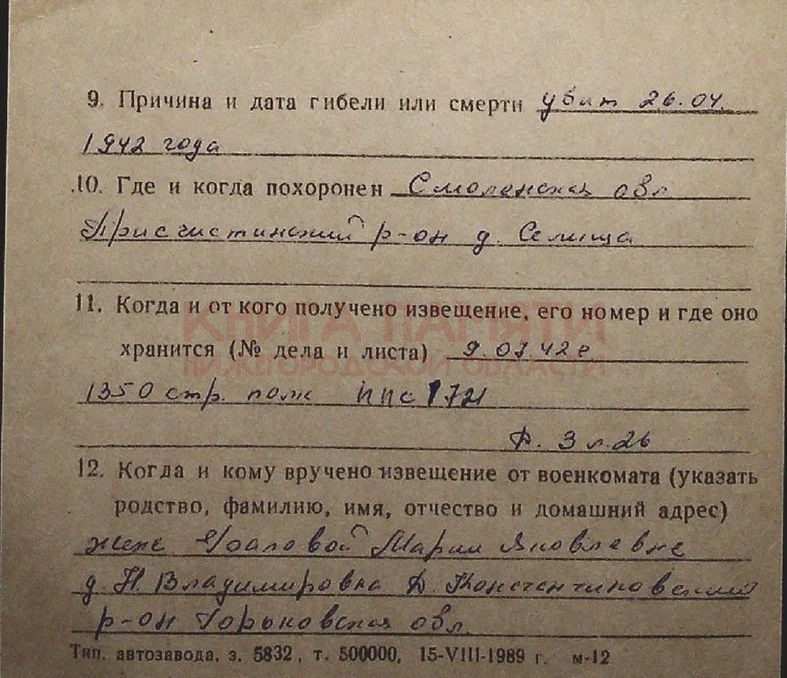 9. Причина и дата гибели или смерти убит 26.04.
1942 года
10. Где и когда похоронен Смоленская обл
Присчистинский р-он д. Селища
11. Когда и от кого получено извещение, его номер и где оно
хранится (№ дела и листа) 9.07.42г
КНИГА ПАМЯТИ
НИЖЕГОРОДСКОЙ ОБЛАСТИ
1350 стр. полк ППС 1721
д. 3 л. 26
12. Когда и кому вручено извещение от военкомата (указать
родство, фамилию, имя, отчество и домашний адрес)
жене Марии Яковлевне
д. Н. Владимировка Д. Константиновский
р-он Горьковская обл.
Тип. автозавода, з. 5832, т. 500000, 15-VIII-1989 г. м-12